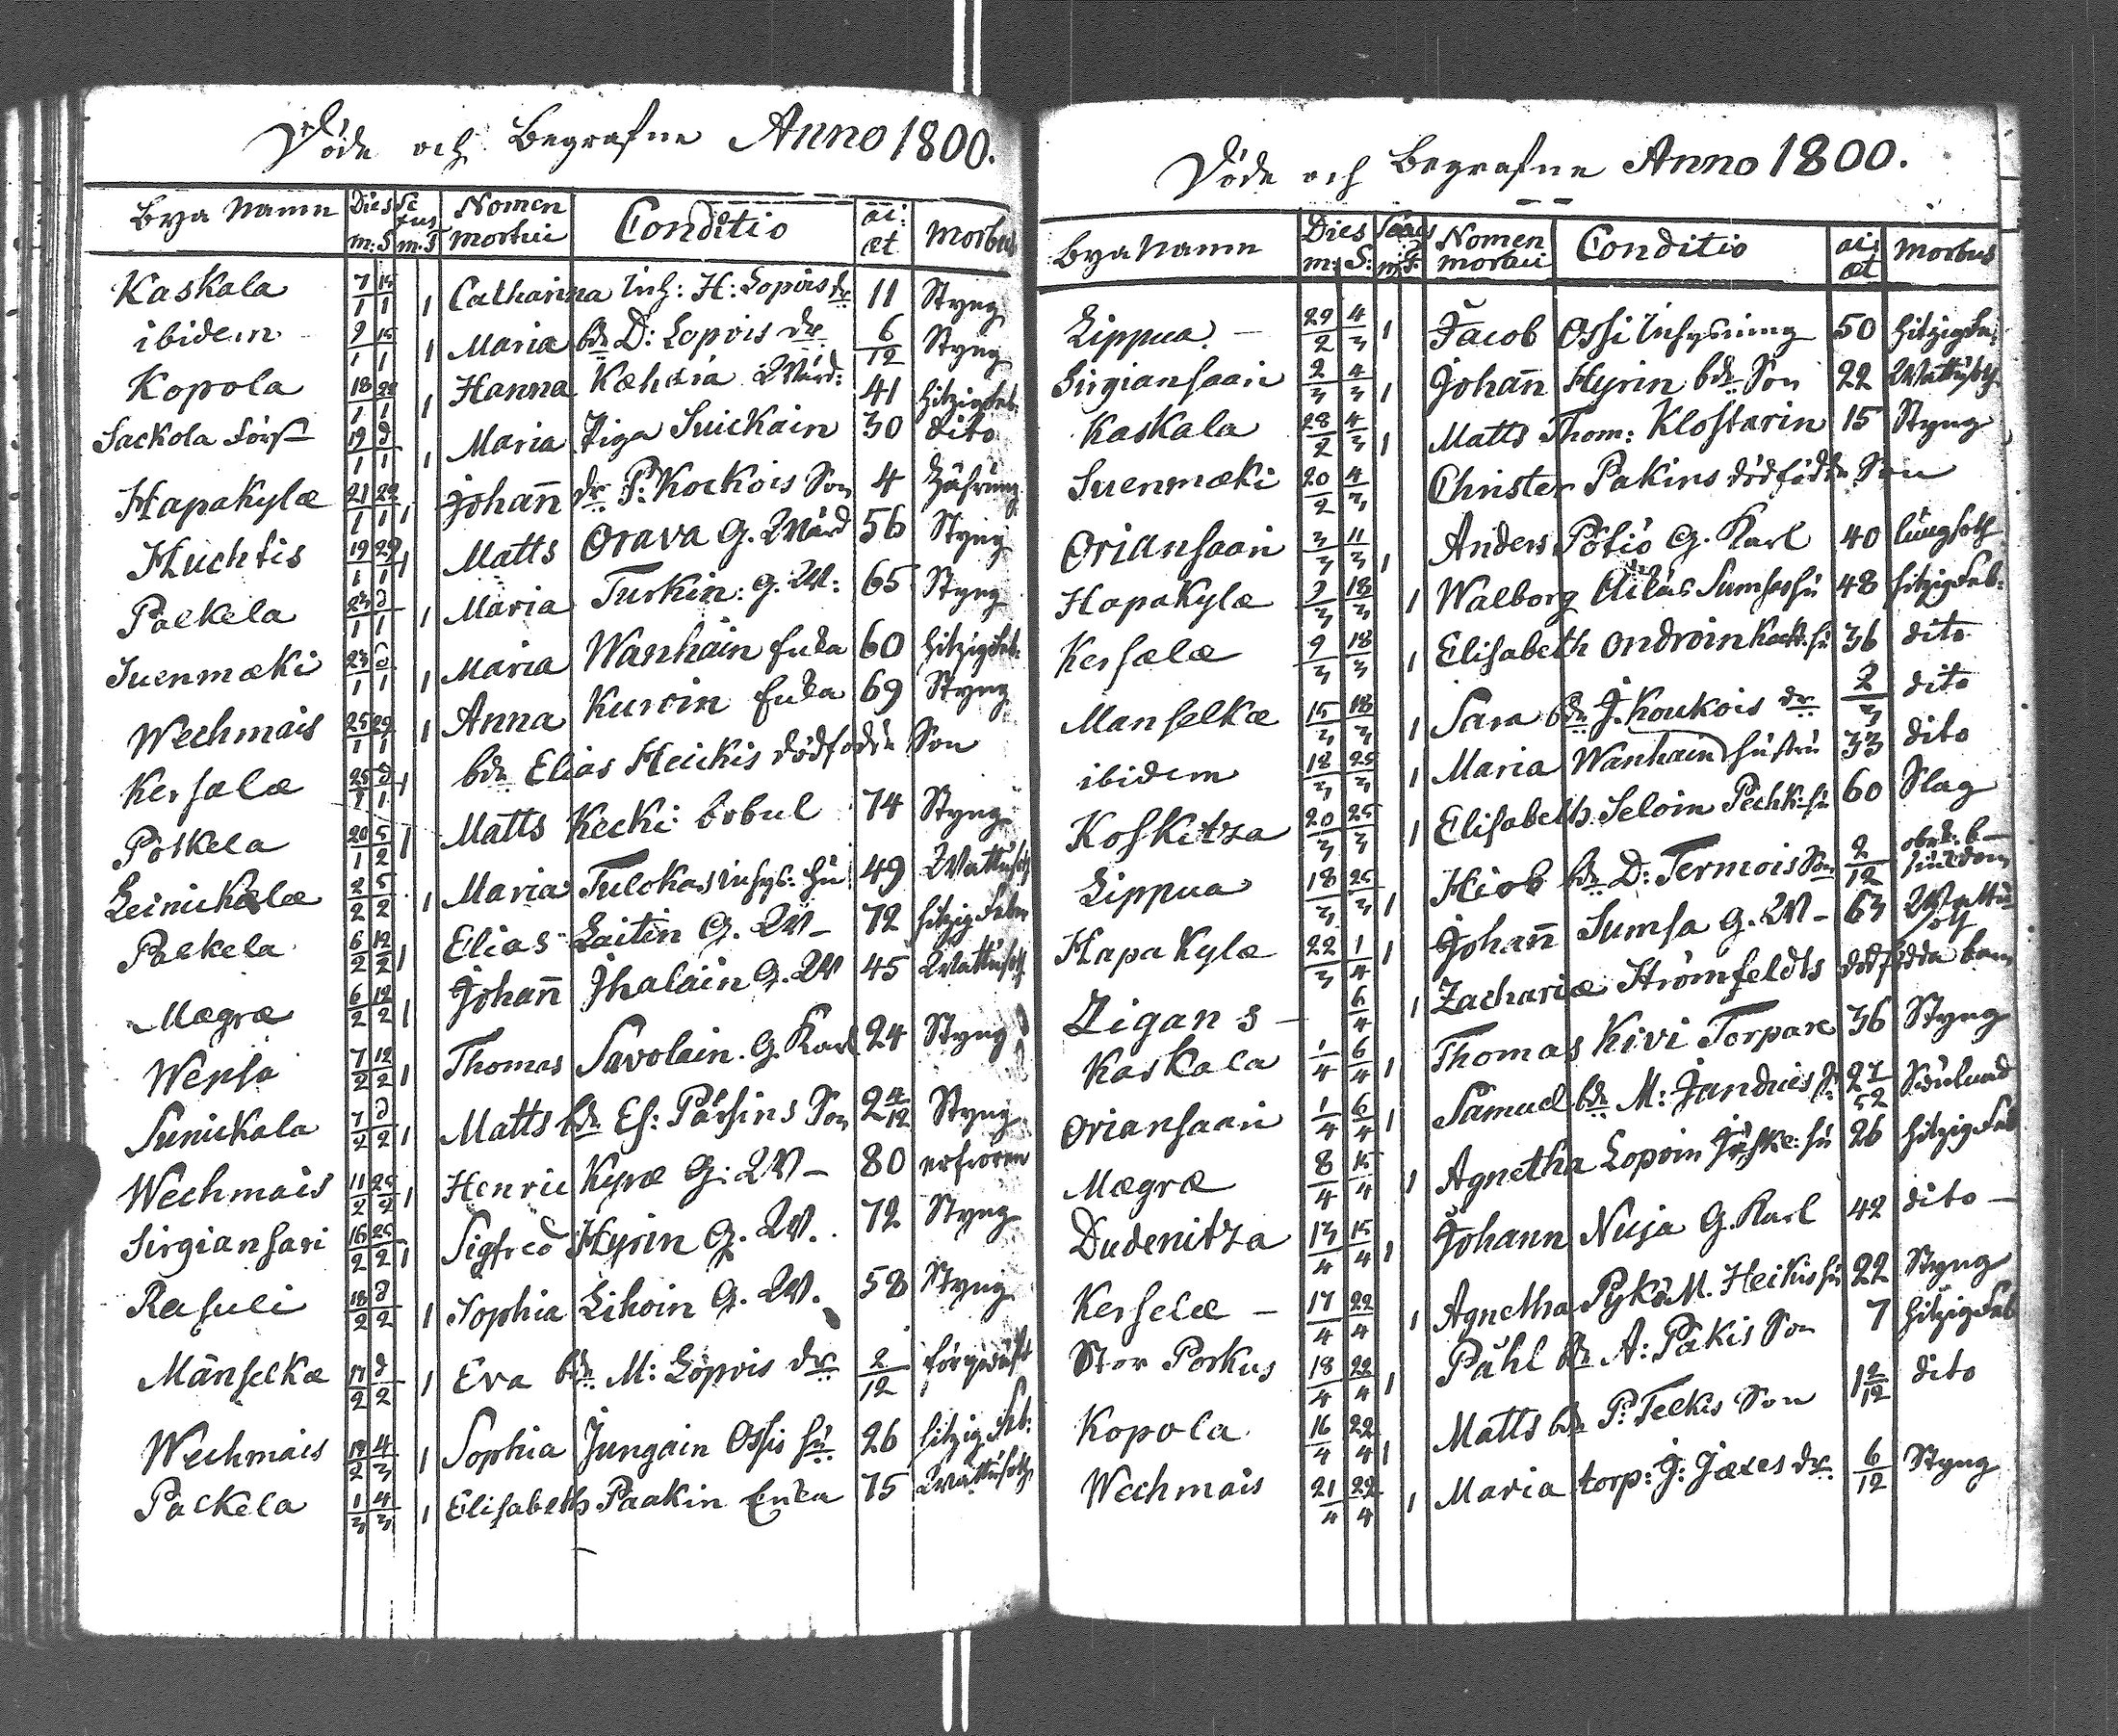 Döde och Begrafne Anno 1800.
Bya Namn Dies m: S Sexus m. f Nomen mortui Conditio ai: æt Morbus
Kaskala 7/1 15/1 1 Catharina Inh: H: Lopois dr 11 Styng
ibidem 9/1 15/1 1 Maria bdr D: Lopois dr 6/12 Styng
Kopola 18/1 22/1 1 Hanna Kæhäriä Wärd: 41 hitzigfeb.
Sackola 19/1 d/1 1 Maria Piga Suickain 30 dito
Hapakylæ 21/1 22/1 1 Johan̄ dr P: Kockois Son 4 Tähring
Huchtis 19/1 29/1 1 Matts Orava G. Wärd 56 Styng
Palkela 23/1 d/1 1 Maria Turkin: G. W: 65 Styng
Suenmæki 23/1 d/1 1 Maria Wanhain Enka 60 hitzigfeb:
Wechmais 25/1 29/1 1 Anna Kurvin Enka 69 Styng
Kersælæ 25/1 d/1 1 bdr Elias Heickis dödfödde Son
Pölkela 20/1 5/2 1 Matts Kecki 74 Styng
Leinickælæ 2/2 5/2 1 Maria Tulokas Inhys: hu 49 Wattusot
Palkela 6/2 12/2 1 Elias Laitin G. W- 72 hitzig Feber
Mægræ 6/2 12/2 1 Johan̄ Jhalain G. W 45 Wattusot
Wepsa 7/2 12/2 1 Thomas Savolain. G. Karl 24 Styng
Sunickala 7/2 d/2 1 Matts bdr Es: Pässins Son 2 Styng
Wechmais 11/2 25/2 1 Henric Kyræ G: W- 80 erfroren
Sirgiansari 16/2 25/2 1 Sigfred Hyrin G. W. 72 Styng
Rasuli 18/2 d/2 1 Sophia Lihoin G. W. 58 Styng
Mänselkæ 17/2 d/2 1 Eva bdr M: Lopois dr 2/12
Wechmais 19/2 4/3 1 Sophia Jungain Ossis hu 26 hitzig Feb:
Palkela 1/3 4/3 1 Elisabeth Paakin Enka 75 Wattusot
Döde och Begrafne Anno 1800.
Bya Namn Dies m: S: Sexus m: f: Nomen mortui Conditio ai: æt Morbus
Lippua - 29/2 4/3 1 Jacob Ossi Inhysning 50 hitzigFe:
Sirgiansaari 2/3 4/3 1 Johan̄ Hyrin bdr Son 22 Wattusot
Kaskala 28/2 4/3 1 Matts Thom: Klostarin 15 Styng
Suenmæki 20/2 4/3 Christer Pakins dödfödde Son
Oriansaari 3/3 11/3 1 Anders Pötiö G. Karl 40 lungsot
Hapakylæ 9/3 18/3 1 Walborg Ailas Sumsas hu 48 hitzigFeb:
Kersælæ 9/3 18/3 1 Elisabeth Ondroin hu 36 dito
Manselkæ 15/3 18/3 1 Sara bdr J. Koukois dr 2/3 dito
ibidem 18/3 25/3 1 Maria Wanhain hustru 33 dito
Koskitza 20/3 25/3 1 Elisabeth Seloin Pechk: hu 60 Slag
Lippua 18/3 25/3 1 Hiob bdr D: Termois Son 2/12 obek: b- sjukdom
Hapakylæ 22/3 1/4 1 Johan̄ Sumsa G. W- 63 Wattusot
Zigans - 6/4 1 Zachariæ Strömfeldts dödfödda barn
Kaskala 1/4 6/4 1 Thomas Kivi Torpare 36 Styng
Oriansaari 1/4 6/4 1 Samuel bdr M: Janducis S: 2
Mægræ 8/4 15/4 1 Agnetha Lopoin Jæske: hu 26 hitzig Feb
Dudenitza 13/4 15/4 1 Johann Nuja G. Karl 42 dito -
Kerselæ - 17/4 22/4 1 Agnetha Pykä M. Heikis hu 22 Styng
Stor Porkus 18/4 22/4 1 Påhl bdr A: Pakis Son 7 hitzigFeb
Kopola 16/4 22/4 1 Matts bdr P: Teckis Son 1 2/12 dito
Wechmais 21/4 22/4 1 Maria torp: J: Jæses dr. 6/12 Styng